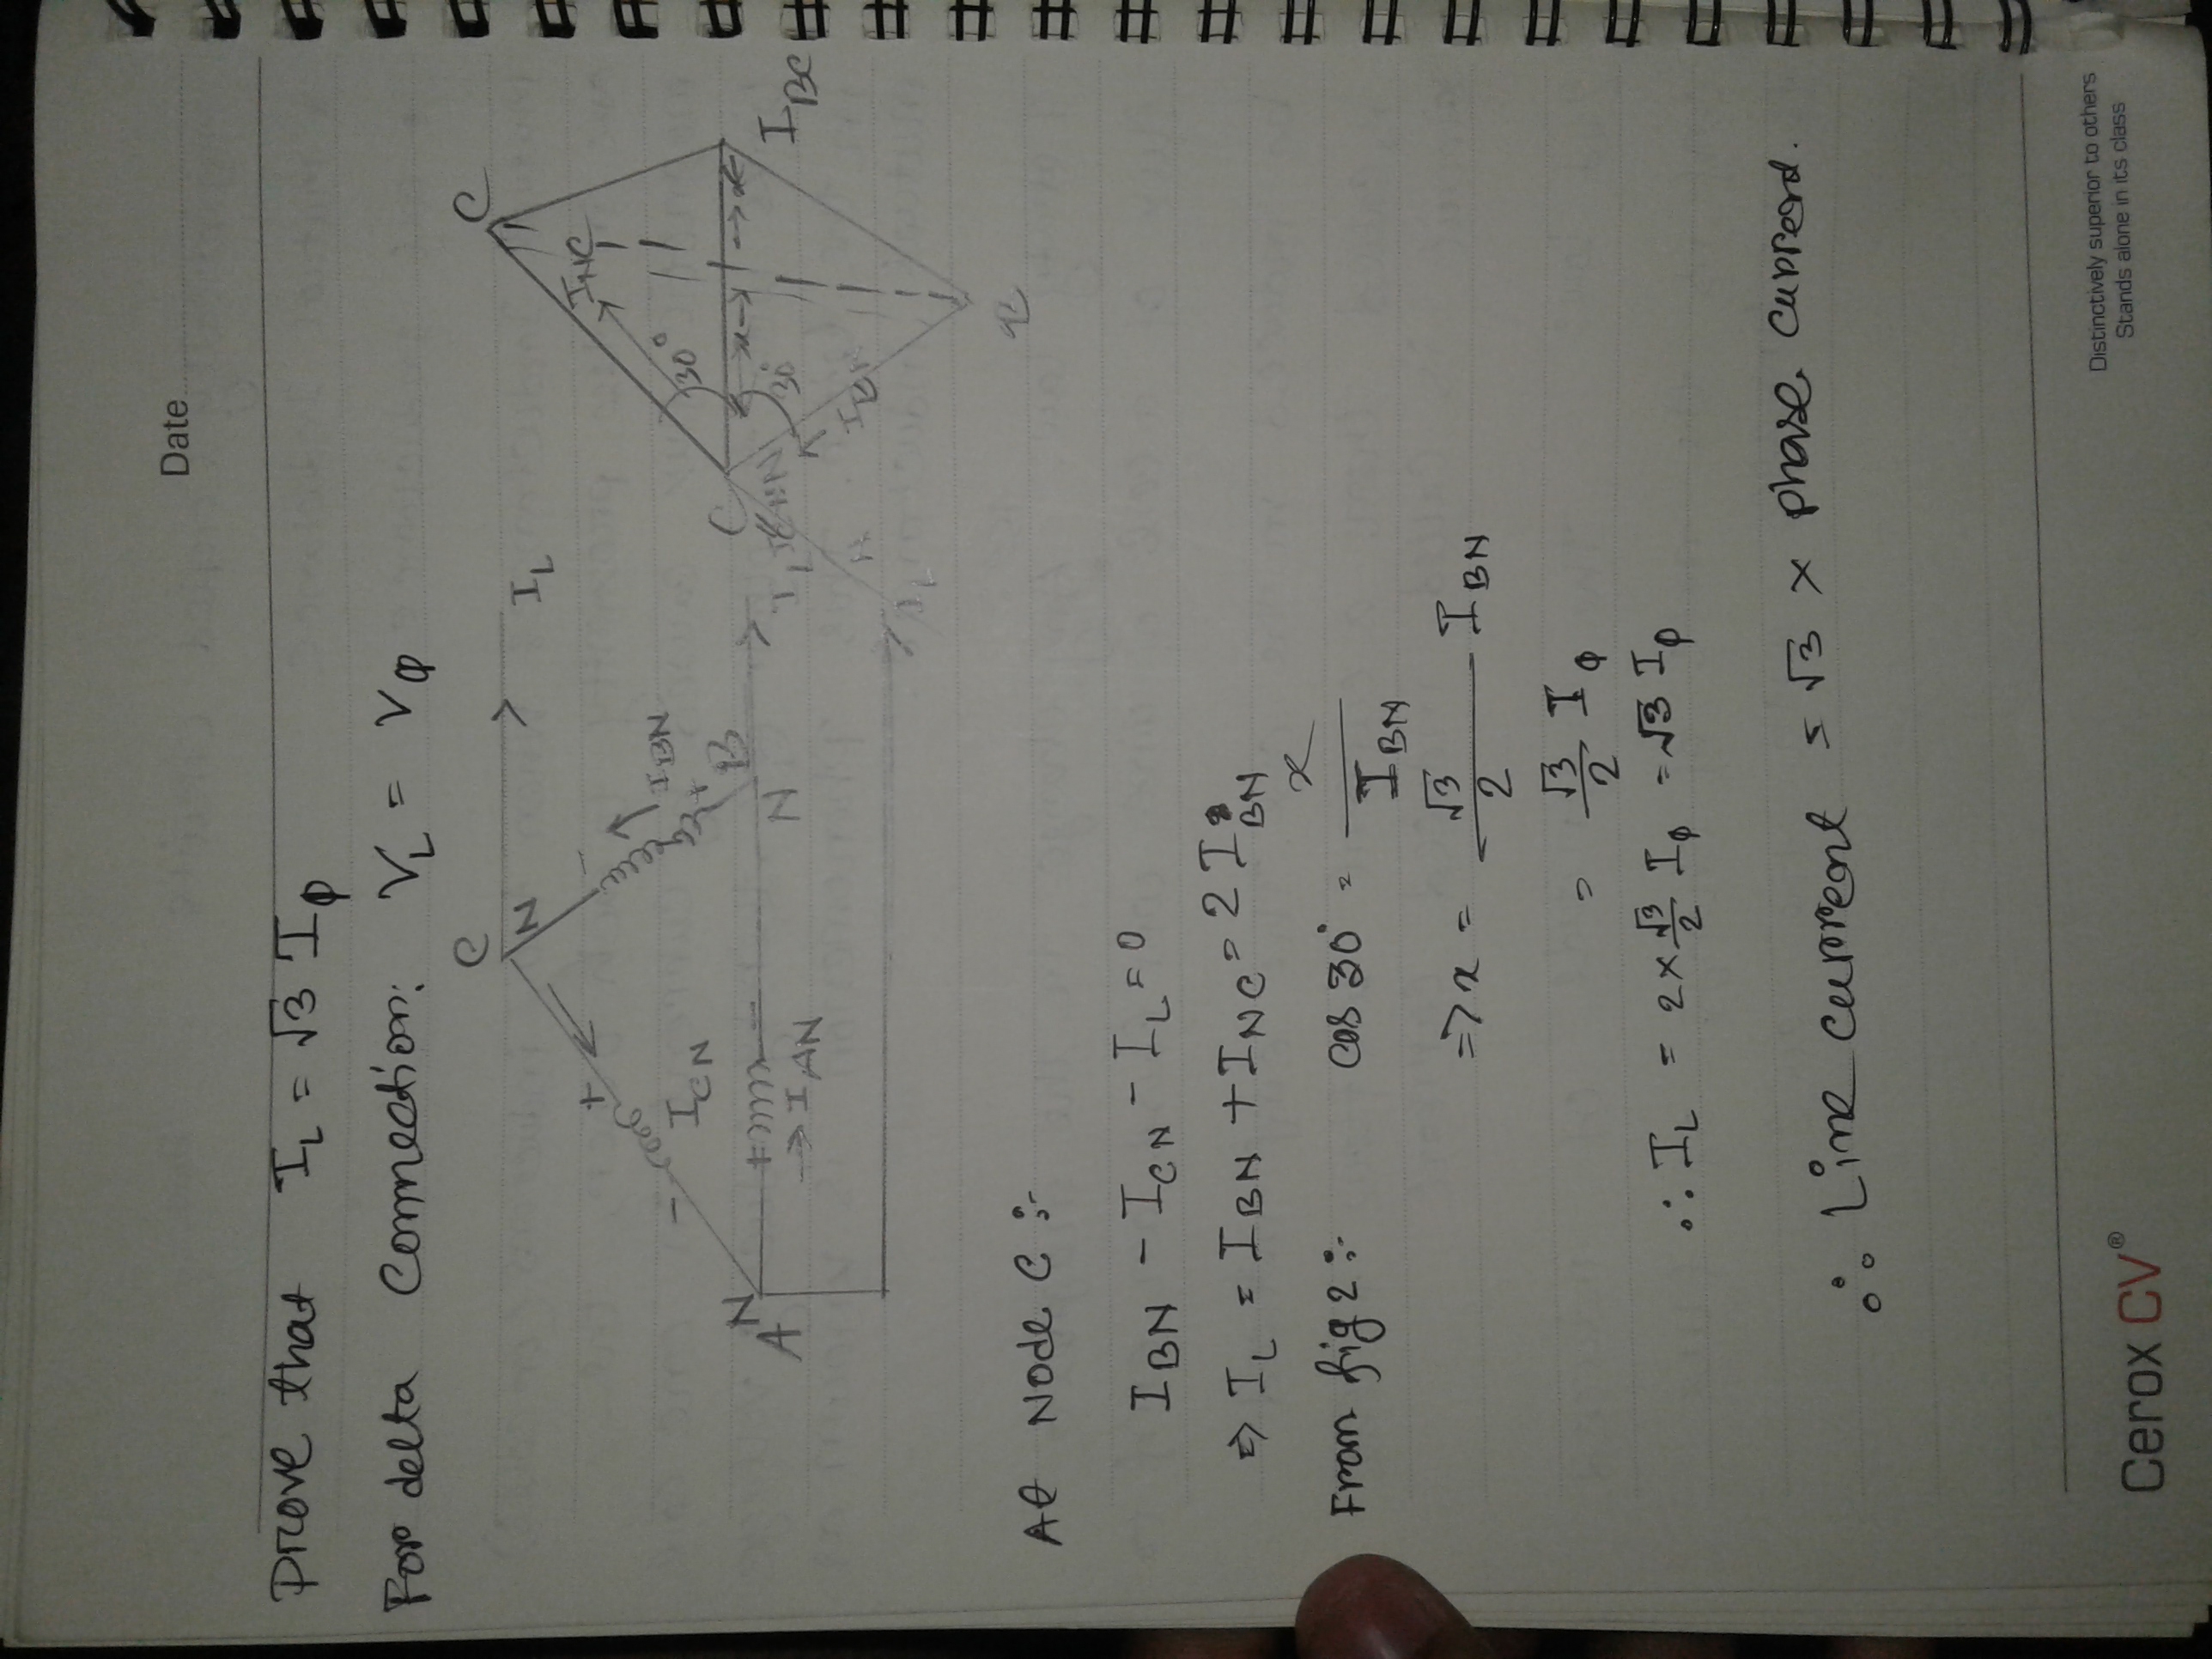 Date
Prove that I_L = √3 I_φ
For delta Connection: V_L = V_φ
C
C
N
I_L
I_NC
+
-
I_BN
30°
-
I_CN
+
N
B
C
x
x
A
+
-
N
I_L
30°
I_BC
→ I_AN
I_BN
N
I_L
B
At Node C :-
I_BN - I_CN - I_L = 0
⇒ I_L = I_BN + I_NC = 2 I_BN
From fig 2 :- cos 30° = x / I_BN
⇒ x = √3/2 I_BN
= √3/2 I_φ
∴ I_L = 2 × √3/2 I_φ = √3 I_φ
∴ Line current = √3 × phase current.
Distinctively superior to others
Stands alone in its class
Cerox CV®